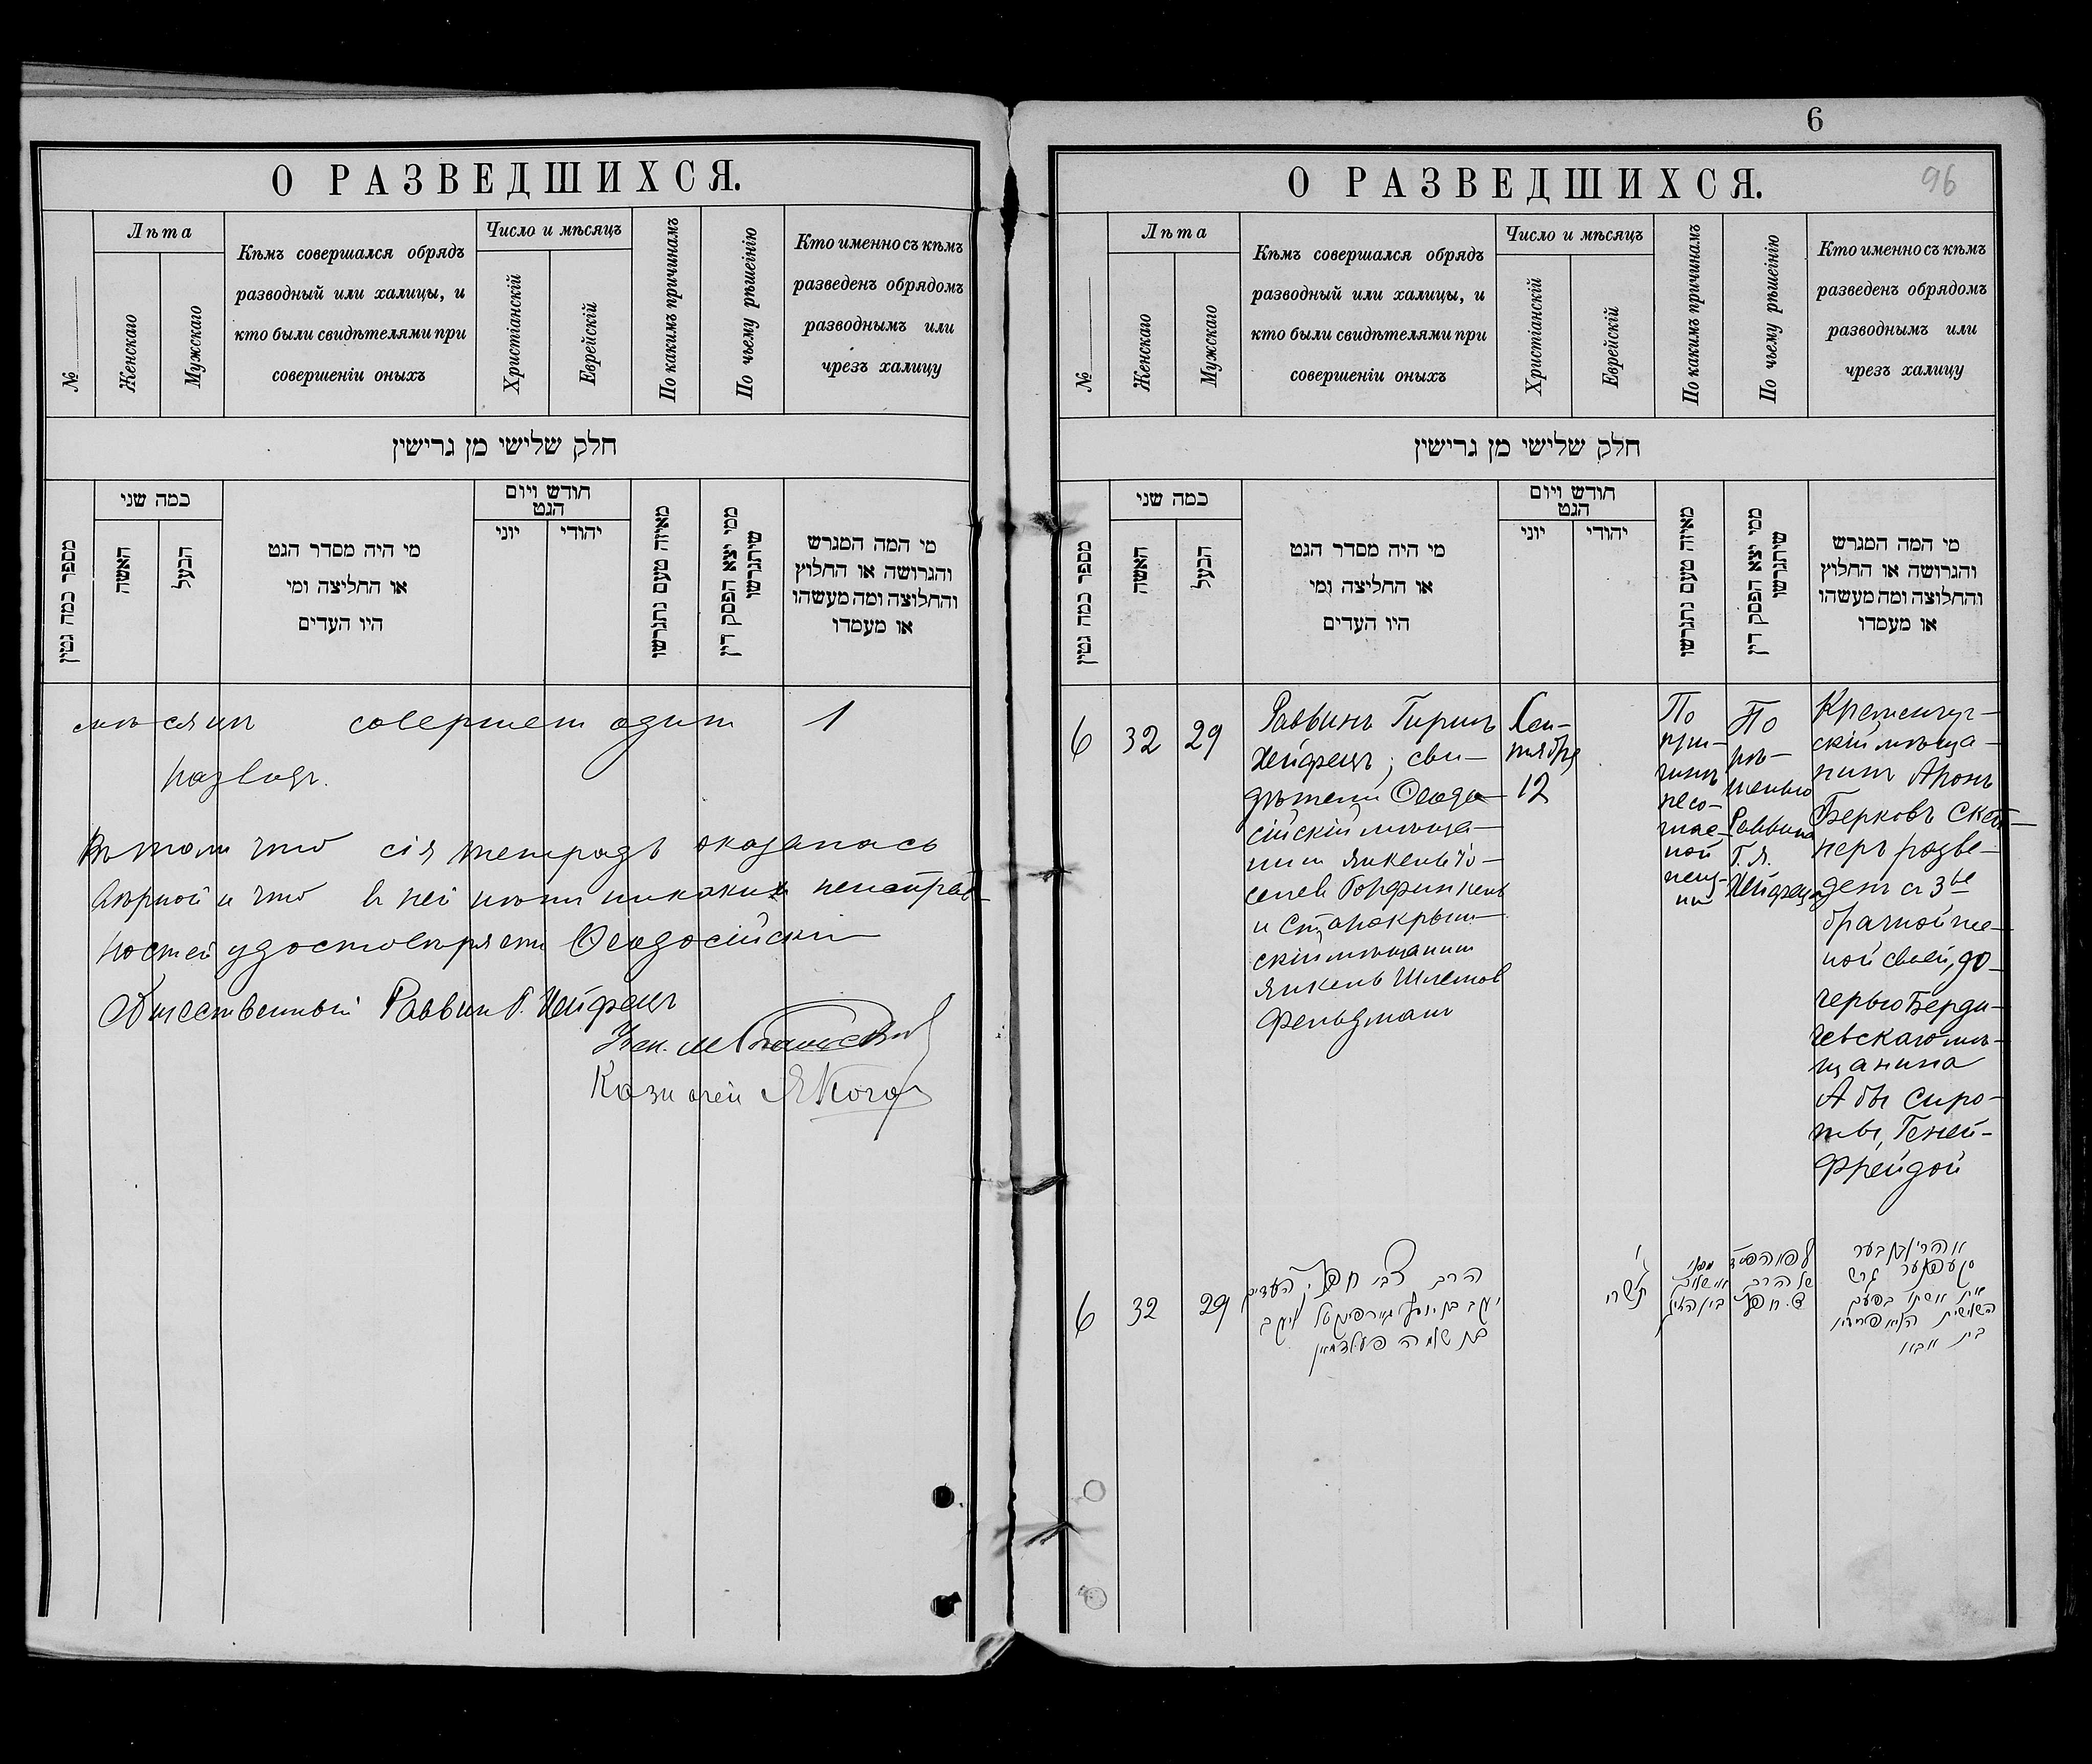 О РАЗВЕДШИХСЯ.
№
Лѣта
Женскаго
Мужскаго
Кѣмъ совершался обрядъ
разводный или халицы, и
кто были свидѣтелями при
совершеніи оныхъ
Число и мѣсяцъ
Христіанскій
Еврейскій
По какимъ причинамъ
По чьему рѣшеінію
Кто именно съ кѣмъ
разведенъ обрядомъ
разводнымъ или
чрезъ халицу
חלק שלישי מן גרישין
מספר כמה גטין
כמה שני
האשה
הבעל
מי היה מסדר הגט
או החליצה ומי
היו העדים
חודש ויום
הגט
יוני
יהודי
מאיזה טעם נתגרשו
ממי יצא הפסק דין
שיתגרשו
מי המה המגרש
והגרושה או החלוץ
והחלוצה ומה מעשהו
או מעמדו
мѣсяцъ совершенъ одинъ 1
разводъ.
Въ томъ что сія тетрадь оказалась
вѣрной и что въ ней нѣтъ никакихъ неисправ-
ностей удостовѣряетъ Ѳеодосійскій
Общественный Раввинъ Г. Хейфецъ
Казначей
6
96
О РАЗВЕДШИХСЯ.
№
Лѣта
Женскаго
Мужскаго
Кѣмъ совершался обрядъ
разводный или халицы, и
кто были свидѣтелями при
совершеніи оныхъ
Число и мѣсяцъ
Христіанскій
Еврейскій
По какимъ причинамъ
По чьему рѣшеінію
Кто именно съ кѣмъ
разведенъ обрядомъ
разводнымъ или
чрезъ халицу
חלק שלישי מן גרישין
מספר כמה גטין
כמה שני
האשה
הבעל
מי היה מסדר הגט
או החליצה ומי
היו העדים
חודש ויום
הגט
יוני
יהודי
מאיזה טעם נתגרשו
ממי יצא הפסק דין
שיתגרשו
מי המה המגרש
והגרושה או החלוץ
והחלוצה ומה מעשהו
או מעמדו
6
32
29
Раввинъ Гиршъ
Хейфецъ; сви-
дѣтели Ѳеодо-
сійскій мѣща-
нинъ Янкель Іо-
селев Горфинкель
и Старокрым-
скій мѣщанинъ
Янкель Шлемов
Фельдманъ
Сен-
тября
12
По
при-
чинѣ
несо-
глас-
ной
жиз-
ни
По
рѣ-
шенію
Раввина
Г. Я.
Хейфеца
Кременчуг-
скій мѣща-
нинъ Аронъ
Берковъ
разве-
денъ съ 3ье
брачной же-
ной своей, до-
черью Берди-
чевскаго мѣ-
щанина
Абы Сиро-
ты, Геней-
Фрейдой
6
32
29
הרב צבי חפץ, העדים
יעקב בן יוסף גורפינקל ויעקב
בן שלמה פעלדמאן
י׳
תשרי
של הרב
צ. חפץ
גרש
את אשתו בפעם
השלישית